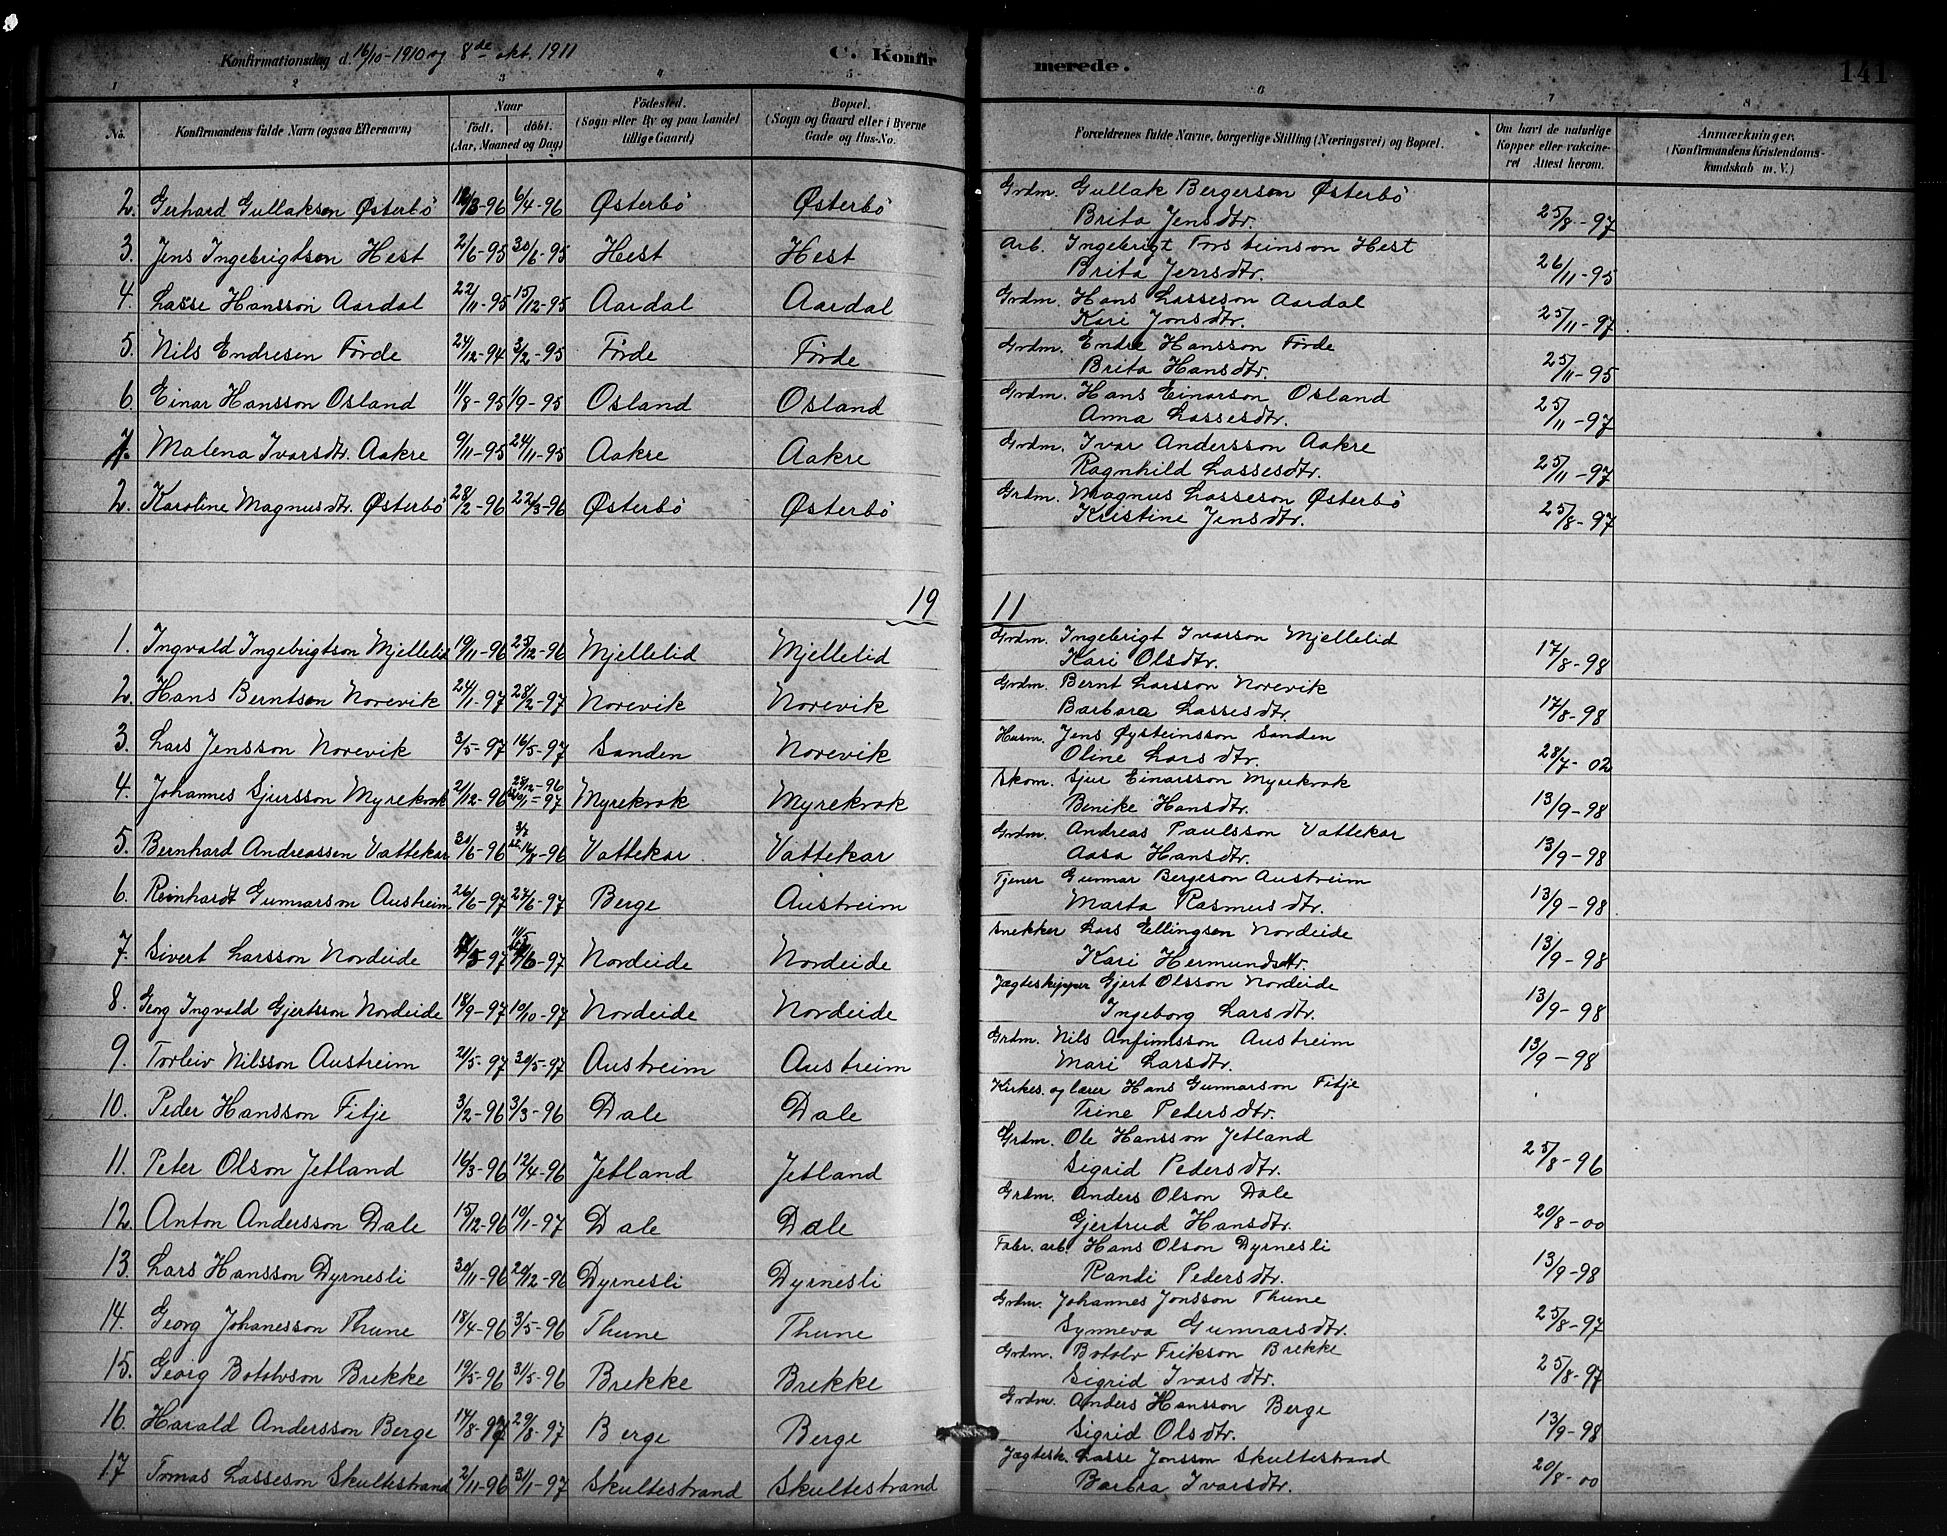 Konfirmationsdag d. 16/10-1910 og 8de okt. 1911 C. Konfir merede. 141
1 2 3 4 5 6 7 8
No. Konfirmandens fulde Navn (ogsaa Efternavn) Naar födt. döbt. (Aar, Maaned og Dag) Födested. (Sogn eller By og paa Landet tillige Gaard) Bopæl. (Sogn og Gaard eller i Byerne Gade og Hus-No. Forældrenes fulde Navne, borgerlige Stilling (Næringsvei) og Bopæl. Om havt de naturlige Kopper eller vakcineret Attest herom. Anmærkninger. (Konfirmandens Kristendomskundskab m. V.)
2. Gerhard Gullaksen Østerbö 6/4-96 Østerbö Østerbö Grdm. Gullak Bergersen Østerbö
Brita Jensdtr. 25/8-97
3. Jens Ingebrigtsen Hest 2/6-95 30/6-95 Hest Hest Arb. Ingebrigt Torsteinson Hest
Brita Jensdtr. 26/11-95
4. Lasse Hansson Aardal 22/11-95 15/12-95 Aardal Aardal Grdm. Hans Lasseson Aardal
Kari Jonsdtr. 25/11-97
5. Nils Endresen Förde 24/12-94 3/2-95 Förde Förde Grdm. Endre Hansson Förde
Brita Hansdtr. 25/11-95
6. Einar Hansson Osland 11/8-95 1/9-95 Osland Osland Grdm. Hans Einarson Osland
Anna Lassesdtr. 25/11-97
1. Malena Ivarsdtr. Aakre 9/11-95 24/11-95 Aakre Aakre Grdm. Ivar Andersson Aakre
Ragnhild Lassesdtr. 25/11-97
2. Karoline Magnusdtr. Østerbö 28/2-96 22/3-96 Østerbö Østerbö Grdm. Magnus Lasseson Østerbö
Kristine Jensdtr. 25/8-97
19 11
1. Ingvald Ingebrigtson Mjellelid 19/11-96 25/12-96 Mjellelid Mjellelid Grdm. Ingebrigt Ivarson Mjellelid
Kari Olsdtr. 17/8-98
2. Hans Berntsen Norevik 24/1-97 28/2-97 Norevik Norevik Grdm. Bernt Larsson Norevik
Barbara Lassesdtr. 17/8-98
3. Lars Jensson Norevik 3/5-97 16/5-97 Sanden Norevik Husm. Jens Øysteinsson Sanden
Oline Larsdtr. 28/7-02
4. Johannes Sjursson Myrekrok 21/12-96 28/12-96 10/1-97 Myrekrok Myrekrok Skom. Sjur Einarsson Myrekrok
Benike Hansdtr. 13/9-98
5. Bernhard Andreassen Vattekar 30/6-96 16/8-96 Vattekar Vattekar Grdm. Andreas Paulsson Vattekar
Aasa Hansdtr. 13/9-98
6. Reinhardt Gunnarson Austreim 26/6-97 27/6-97 Berge Austreim Tjener Gunnar Bergeson Austreim
Marta Rasmusdtr. 13/9-98
7. Sivert Larsson Nordeide Nordeide Nordeide Snekker Lars Ellingsen Nordeide
Kari Hermundsdtr. 13/9-98
8. Georg Ingvald Gjertsson Nordeide 18/9-97 10/10-97 Nordeide Nordeide Jægteskipper Gjert Olsson Nordeide
Ingeborg Larsdtr. 13/9-98
9. Torleiv Nilsson Austreim 21/5-97 30/5-97 Austreim Austreim Grdm. Nils Anfinnsson Austreim
Mari Larsdtr. 13/9-98
10. Peder Hansson Fitje 3/2-96 3/3-96 Dale Dale Kirkes. og lærer Hans Gunnarson Fitje
Trine Pedersdtr.
11. Peter Olson Jetland 16/3-96 12/4-96 Jetland Jetland Grdm. Ole Hansson Jetland
Sigrid Pedersdtr. 25/8-96
12. Anton Andersson Dale 15/12-96 10/1-97 Dale Dale Grdm. Anders Olson Dale
Gjertrud Hansdtr. 20/8-00
13. Lars Hansson Dyrnesli 30/11-96 20/12-96 Dyrnesli Dyrnesli Fabr. arb. Hans Olson Dyrnesli
Randi Pedersdtr. 13/9-98
14. Georg Johanesson Thune 18/4-96 3/5-96 Thune Thune Grdm. Johannes Jonsson Thune
Synneva Gunnarsdtr. 25/8-97
15. Georg Botolvson Brekke 19/5-96 31/5-96 Brekke Brekke Grdm. Botolv Erikson Brekke
Sigrid Ivarsdtr. 25/8-97
16. Harald Andersson Berge 14/8-97 29/8-97 Berge Berge Grdm. Anders Hansson Berge
Sigrid Olsdtr. 13/9-98
17 Tomas Lasseson Skultestrand 2/11-96 31/1-97 Skultestrand Skultestrand Jægtesk. Lasse Jonsson Skultestrand
Barbra Ivarsdtr. 20/8-00